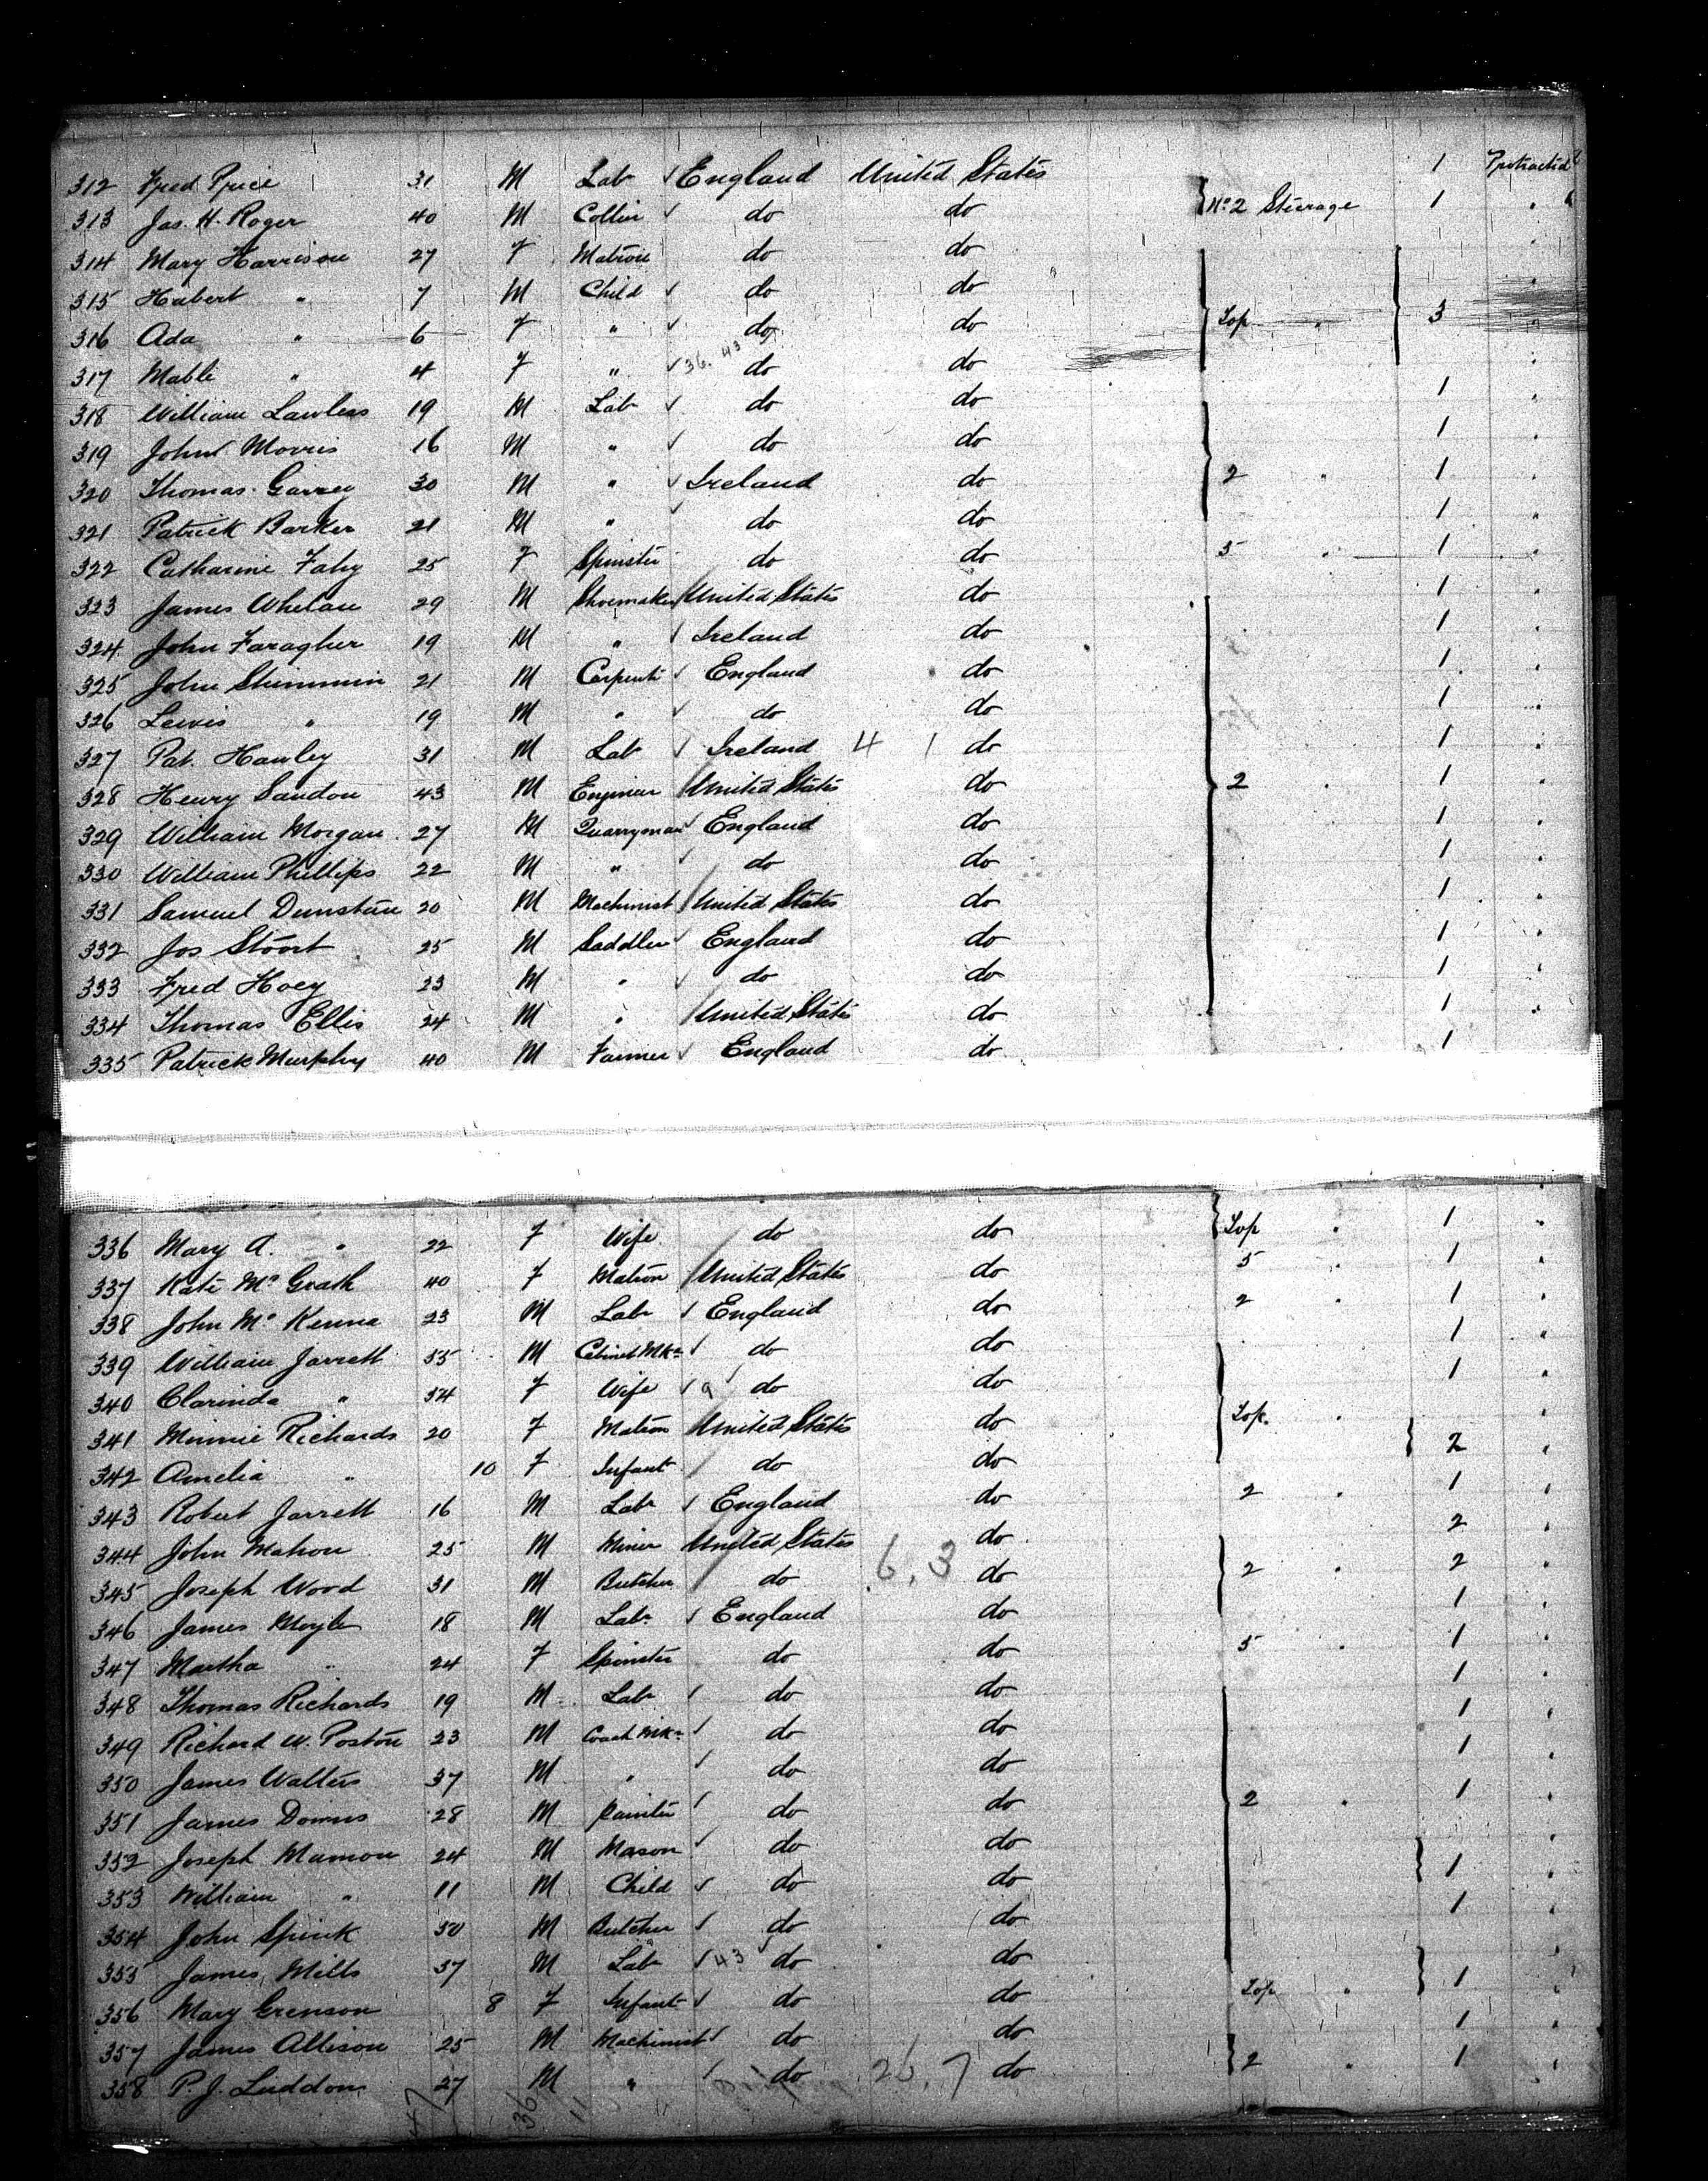 312 Fred Price 31 M Lab England United States 1 Protracted
313 Jas. H. Roger 40 M Collier do do No 2 Steerage 1 "
314 Mary Harrison 27 F Matron do do
315 Hubert " 7 M Child do do "
316 Ada " 6 F " do do Top " 3 "
317 Mable " 4 F " 36. 43 do do "
318 William Lawless 19 M Lab do do 1 "
319 John Morris 16 M " do do 1 "
320 Thomas Garvey 30 M " Ireland do 2 " 1 "
321 Patrick Barker 21 M " do do 1 "
322 Catharine Fahy 25 F Spinster do do 5 " 1 "
323 James Whelan 29 M Shoemaker United States do 1 "
324 John Faragher 19 M " Ireland do 1 "
325 John Skimmin 21 M Carpentr England do 1 "
326 Lewis " 19 M " do do 1 "
327 Pat. Hawley 31 M Lab Ireland 4 1 do 1 "
328 Henry Sandon 43 M Engineer United States do 2 " 1 "
329 William Morgan 27 M Quarryman England do 1 "
330 William Phillips 22 M " do do 1 "
331 Samuel Dunstan 20 M Machinist United States do 1 "
332 Jos Stoort 25 M Saddler England do 1 "
333 Fred Hoey 23 M " do do 1 "
334 Thomas Ellis 24 M " United States do 1 "
335 Patrick Murphy 40 M Farmer England do 1
336 Mary A. " 22 F Wife do do Top " 1 "
337 Kate Mc Grath 40 F Matron United States do 5 " 1 "
338 John Mc Kenna 23 M Lab England do 2 " 1 "
339 William Jarrett 55 M Cabinet Mkr do do 1 "
340 Clarinda " 54 F Wife 9 do do 1 "
341 Minnie Richards 20 F Matron United States do Top. " "
342 Amelia " 10 F Infant do do 2 "
343 Robert Jarrett 16 M Labr England do 2 " 1 "
344 John Mahon 25 M Miner United States do 2 "
345 Joseph Wood 31 M Butcher do 6, 3 do 2 " 2 "
346 James Moyle 18 M Labr England do 1 "
347 Martha " 24 F Spinster do do 5 " 1 "
348 Thomas Richards 19 M Labr do do 1 "
349 Richard W. Poston 23 M Coach Mkr do do 1 "
350 James Walters 37 M " do do 1 "
351 James Downs 28 M Painter do do 2 " 1 "
352 Joseph Mumon 24 M Mason do do "
353 William " 11 M Child do do 1 "
354 John Spink 50 M Butcher do do 1 "
355 James Mills 37 M Lab 43 do do "
356 Mary Grenson 8 F Infant do do Top " 1 "
357 James Allison 25 M Machinist do do 1 "
358 P. J. Luddon 27 M " do 26, 7 do 2 " 1 "
47 36 11